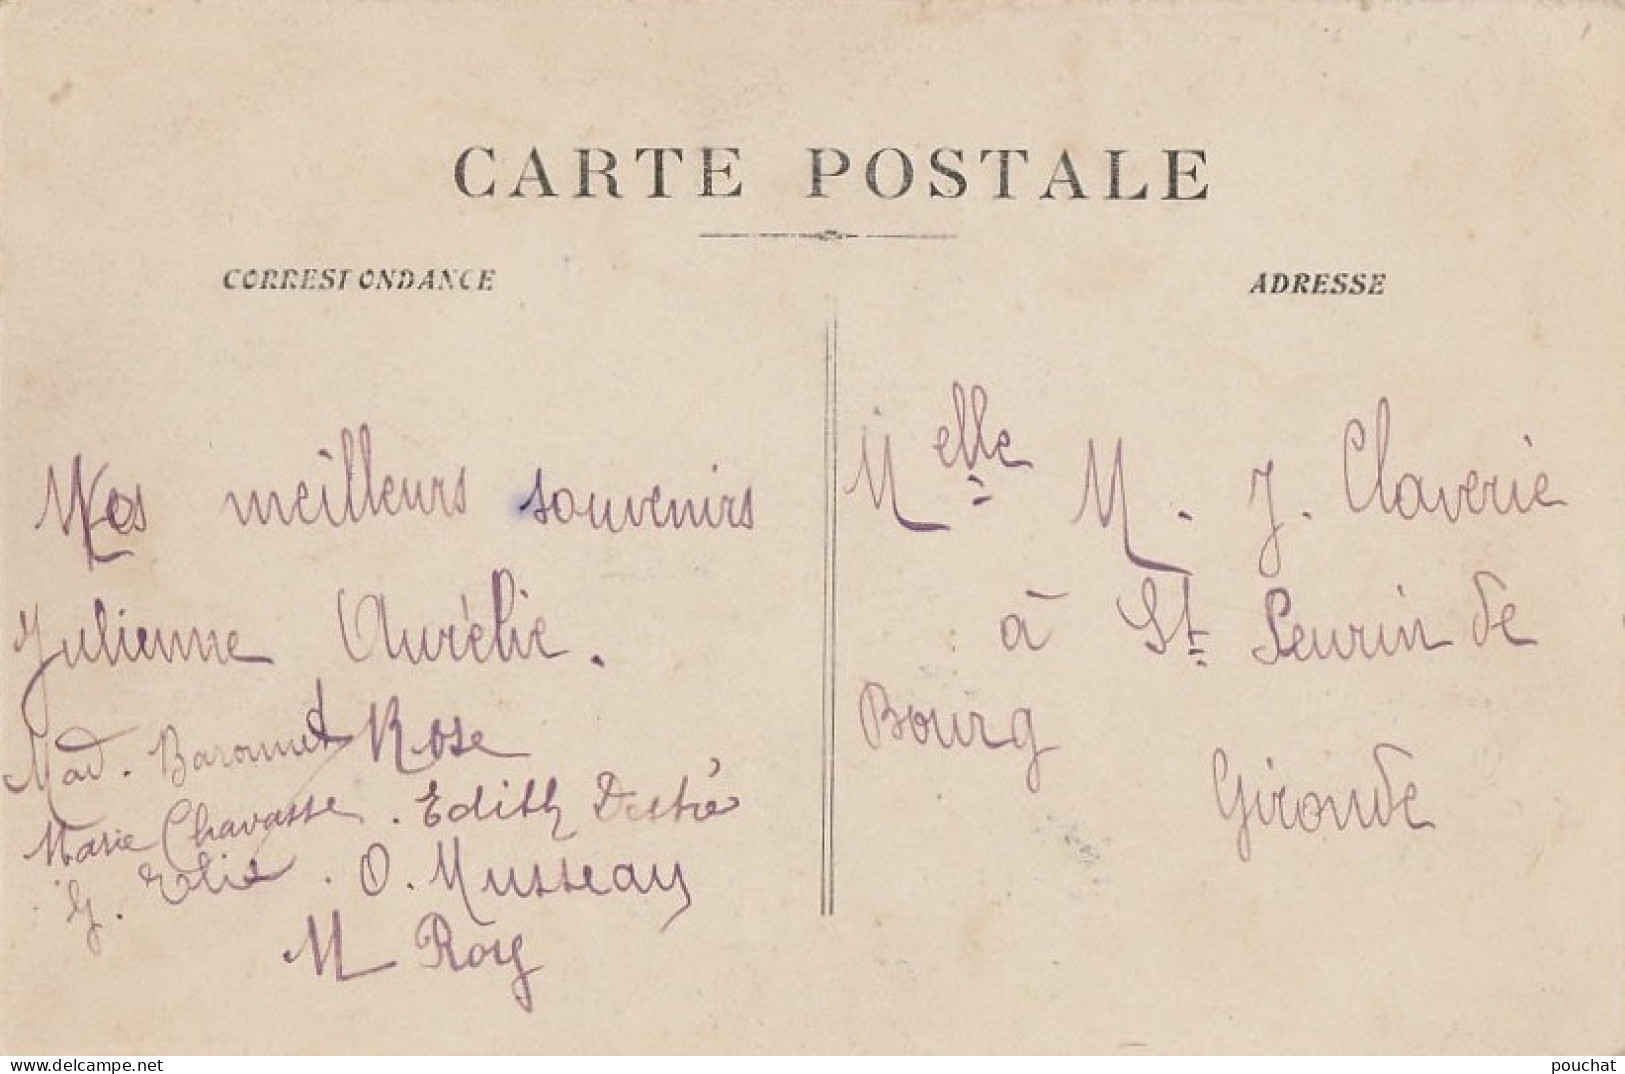 CARTE POSTALE
CORRESPONDANCE
ADRESSE
Nos meilleurs souvenirs
Julienne Aurélie.
Mad. Baronnet Rose
Marie Chavasse. Edith Destré
G. Elie. O. Musseau
M Roy
Melle M. J. Claverie
à St Seurin de
Bourg
Gironde
delcampe.net
pouchat